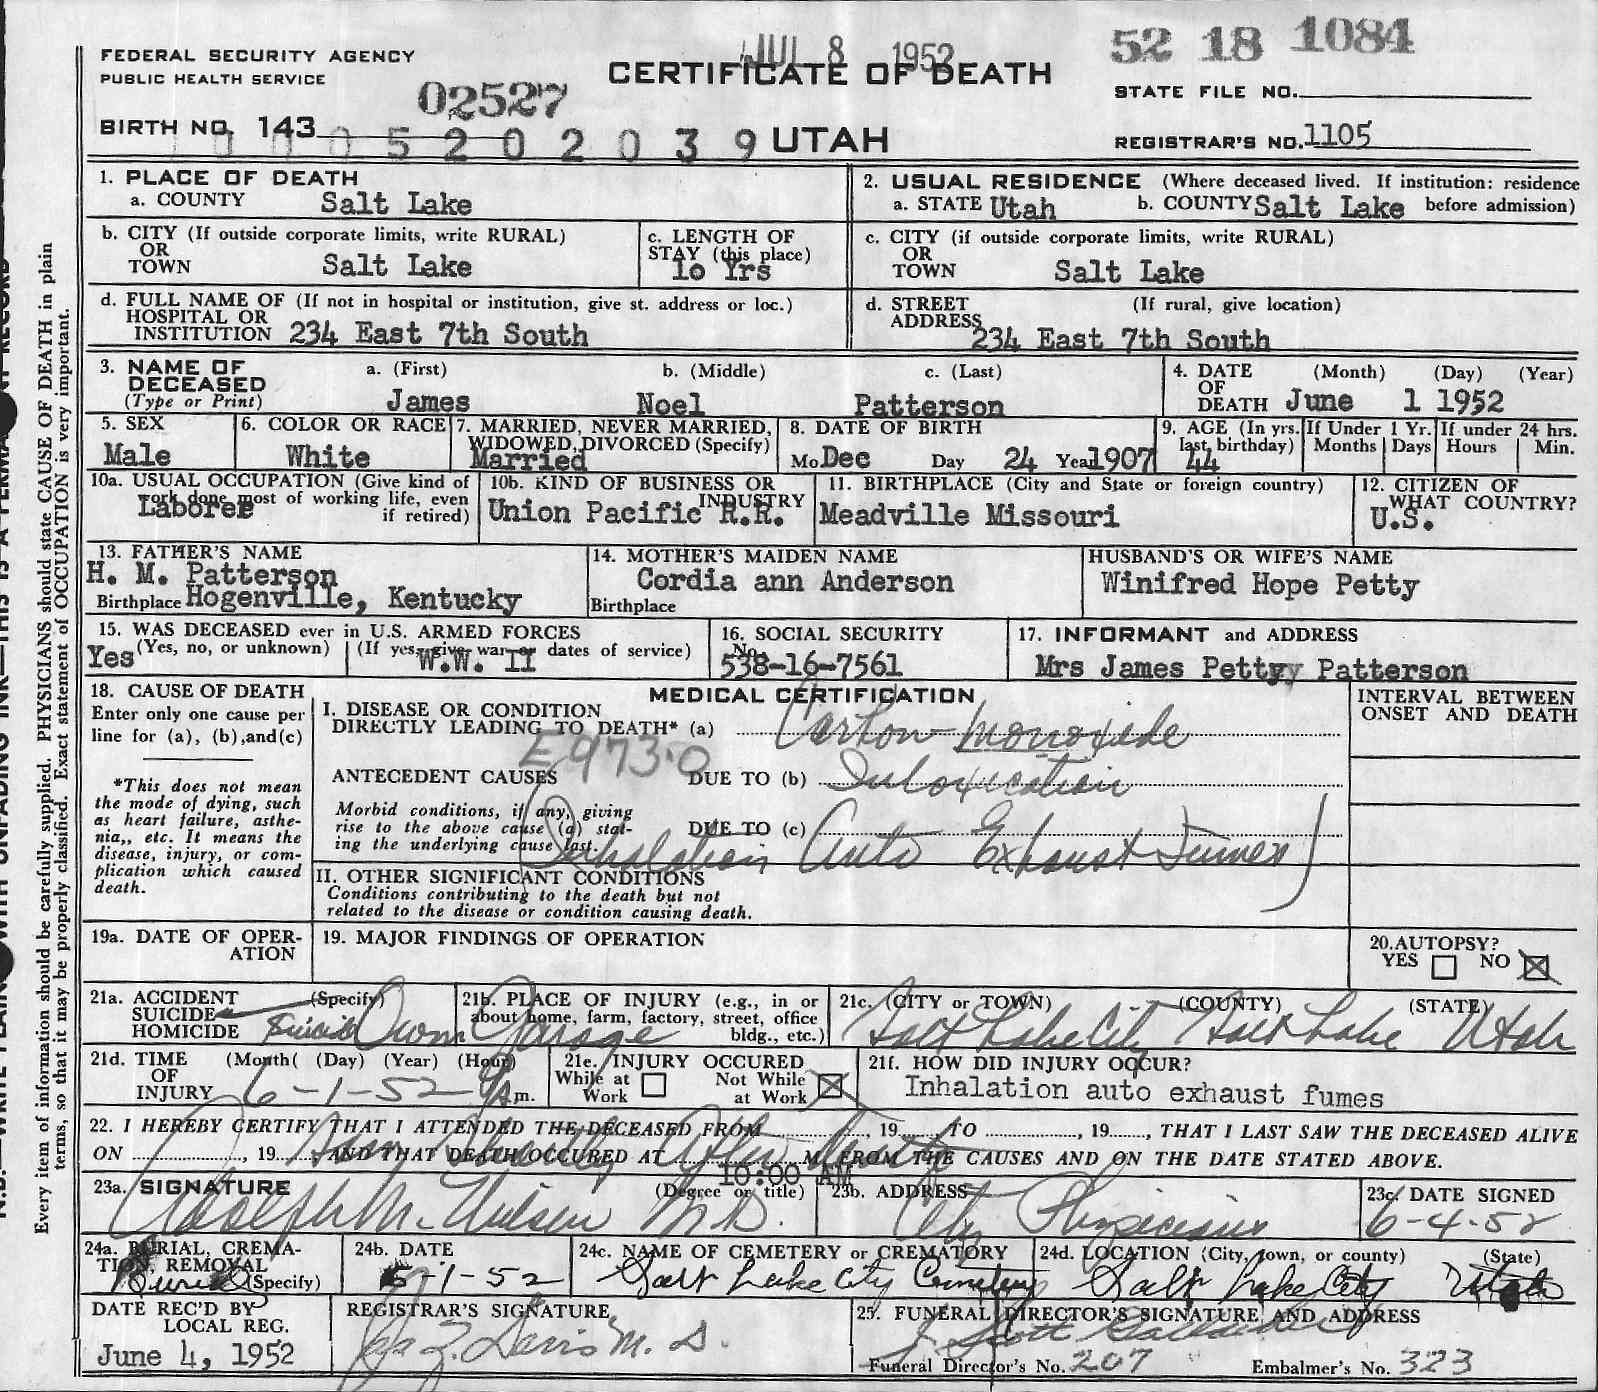 JUL 8 1952
52 18 1084
FEDERAL SECURITY AGENCY
PUBLIC HEALTH SERVICE
CERTIFICATE OF DEATH
STATE FILE NO.
02527
BIRTH NO. 143
0 0 0 5 2 0 2 0 3 9
UTAH
REGISTRAR'S NO. 1105
1. PLACE OF DEATH
a. COUNTY Salt Lake
2. USUAL RESIDENCE (Where deceased lived. If institution: residence before admission)
a. STATE Utah b. COUNTY Salt Lake
b. CITY (If outside corporate limits, write RURAL)
OR
TOWN Salt Lake
c. LENGTH OF
STAY (this place)
10 Yrs
c. CITY (if outside corporate limits, write RURAL)
OR
TOWN Salt Lake
d. FULL NAME OF (If not in hospital or institution, give st. address or loc.)
HOSPITAL OR
INSTITUTION 234 East 7th South
d. STREET (If rural, give location)
ADDRESS 234 East 7th South
3. NAME OF
DECEASED
(Type or Print)
a. (First) b. (Middle) c. (Last)
James Noel Patterson
4. DATE (Month) (Day) (Year)
OF
DEATH June 1 1952
5. SEX
Male
6. COLOR OR RACE
White
7. MARRIED, NEVER MARRIED,
WIDOWED, DIVORCED (Specify)
Married
8. DATE OF BIRTH
Mo Dec Day 24 Year 1907
9. AGE (In yrs. last birthday)
44
If Under 1 Yr.
Months Days
If under 24 hrs.
Hours Min.
10a. USUAL OCCUPATION (Give kind of
work done most of working life, even
if retired)
Laborer
10b. KIND OF BUSINESS OR
INDUSTRY
Union Pacific R.R.
11. BIRTHPLACE (City and State or foreign country)
Meadville Missouri
12. CITIZEN OF
WHAT COUNTRY?
U.S.
13. FATHER'S NAME
H. M. Patterson
Birthplace Hogenville, Kentucky
14. MOTHER'S MAIDEN NAME
Cordia ann Anderson
Birthplace
HUSBAND'S OR WIFE'S NAME
Winifred Hope Petty
15. WAS DECEASED ever in U.S. ARMED FORCES
(Yes, no, or unknown) (If yes, give war or dates of service)
Yes W.W. II
16. SOCIAL SECURITY
No.
538-16-7561
17. INFORMANT and ADDRESS
Mrs James Pettyy Patterson
18. CAUSE OF DEATH
Enter only one cause per
line for (a), (b), and (c)
*This does not mean
the mode of dying, such
as heart failure, asthe-
nia,, etc. It means the
disease, injury, or com-
plication which caused
death.
MEDICAL CERTIFICATION
I. DISEASE OR CONDITION
DIRECTLY LEADING TO DEATH* (a) Carbon Monoxide
E973.0
ANTECEDENT CAUSES DUE TO (b) Intoxication
Morbid conditions, if any, giving
rise to the above cause (a) stat-
ing the underlying cause last.
DUE TO (c)
(Inhalation Auto Exhaust Fumes)
INTERVAL BETWEEN
ONSET AND DEATH
II. OTHER SIGNIFICANT CONDITIONS
Conditions contributing to the death but not
related to the disease or condition causing death.
19a. DATE OF OPER-
ATION
19. MAJOR FINDINGS OF OPERATION
20. AUTOPSY?
YES NO X
21a. ACCIDENT (Specify)
SUICIDE
HOMICIDE Suicide
21b. PLACE OF INJURY (e.g., in or
about home, farm, factory, street, office
bldg., etc.)
Own Garage
21c. (CITY or TOWN) (COUNTY) (STATE)
Salt Lake City Salt Lake Utah
21d. TIME (Month( (Day) (Year) (Hour)
OF
INJURY 6-1-52 9 Am.
21e. INJURY OCCURED
While at Work Not While at Work X
21f. HOW DID INJURY OCCUR?
Inhalation auto exhaust fumes
22. I HEREBY CERTIFY THAT I ATTENDED THE DECEASED FROM , 19 TO , 19 , THAT I LAST SAW THE DECEASED ALIVE
ON , 19 AND THAT DEATH OCCURED AT M, FROM THE CAUSES AND ON THE DATE STATED ABOVE.
10:00 AM
23a. SIGNATURE (Degree or title)
Adolph M. Nielsen M.D.
23b. ADDRESS
City Physician
23c. DATE SIGNED
6-4-52
24a. BURIAL, CREMA-
TION, REMOVAL
(Specify)
Burial
24b. DATE
6-1-52
24c. NAME OF CEMETERY or CREMATORY
Salt Lake City Cemetery
24d. LOCATION (City, town, or county) (State)
Salt Lake City Utah
DATE REC'D BY
LOCAL REG.
June 4, 1952
REGISTRAR'S SIGNATURE
Davis M. D.
25. FUNERAL DIRECTOR'S SIGNATURE AND ADDRESS
Funeral Director's No. 207 Embalmer's No. 323
Every item of information should be carefully supplied. PHYSICIANS should state CAUSE OF DEATH in plain
terms, so that it may be properly classified. Exact statement of OCCUPATION is very important.